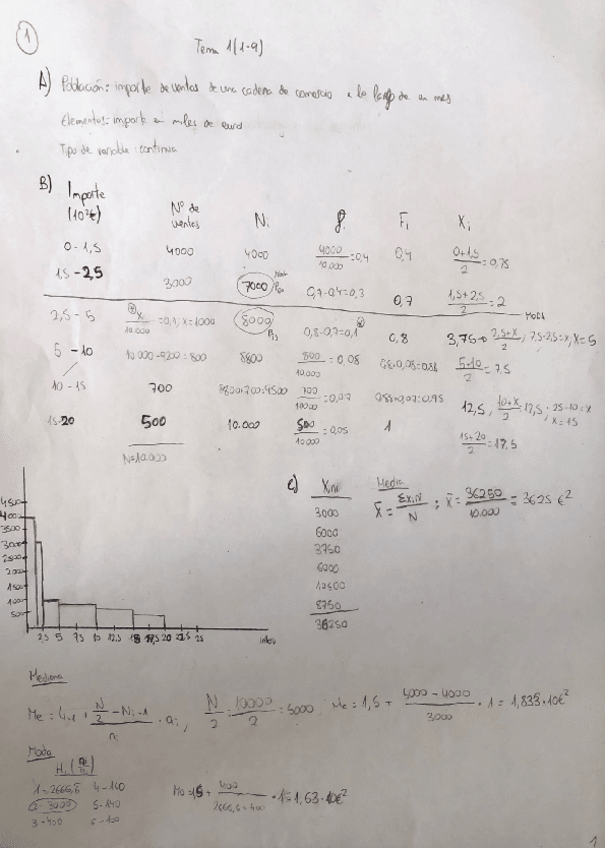 1
Tema 1 (1-9)
A) Población: importe de ventas de una cadena de comercio a lo largo de un mes
Elementos: importe en miles de euro
Tipo de variable: continua
B) Importe (10³€) Nº de ventas Ni fi Fi Xi
0 - 1,5 4000 4000 4000/10.000 = 0,4 0,4 0+1,5/2 = 0,75
1,5 - 2,5 3000 7000 0,7-0,4=0,3 0,7 1,5+2,5/2 = 2
MODA
2,5 - 5 x/10.000 = 0,1; x=1000 8000 0,8-0,7=0,1 0,8 3,75 → 2,5+x/2; 7,5-2,5=x; x=5
5 - 10 10.000-9200=800 8800 800/10.000 = 0,08 0,8+0,08=0,88 5+10/2 = 7,5
10 - 15 700 700/10000 = 0,07 0,88+0,07=0,95 12,5; 10+x/2 = 12,5; 25-10=x; x=15
15-20 500 10.000 500/10.000 = 0,05 1 15+20/2 = 17,5
N=10.000
4500
400
3500
3000
2500
2000
1500
1000
500
2,5 5 7,5 10 12,5 15 17,5 20 25
c) Xini
3000
6000
3750
6000
8750
36250
Media
x̄ = ΣxiN/N ; x̄ = 36250/10.000 = 3625 €²
Mediana
Me = Li-1 + N/2 - Ni-1/ni · ai, N/2 = 10000/2 = 5000, Me = 1,5 + 5000 - 4000/3000 · 1 = 1,833·10€²
Moda
Hi (ni/ai)
1=2666,6 4-160
2- 3000 5-140
3-400 6-100
Mo = 1,5 + 400/2666,6+400 · 1 = 1,63·10€²
1